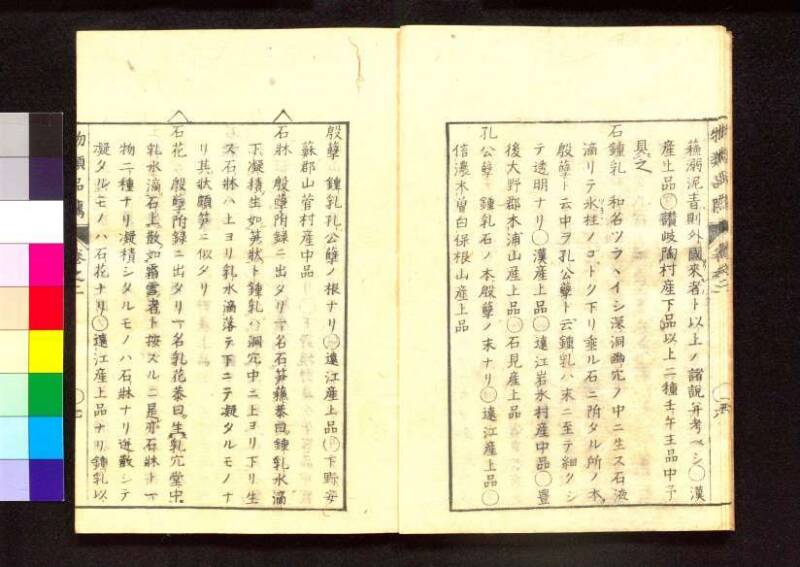 蘓溺泥青則外國來者ト以上ノ諸說弁考ベシ〇漢
產上品〇讃岐陶村產下品以上二種壬午主品中予
具之
石鍾乳 和名ツラヽイシ深洞幽穴ノ中ニ生ス石液
滴リテ氷柱ノゴトク下リ垂ル石ニ附タル所ノ本
殷孽ト云中ヲ孔公孽ト云鍾乳ハ末ニ至テ細クシ
テ透明ナリ〇漢產上品〇遠江岩水村產中品〇豊
後大野郡木浦山產上品〇石見產上品
孔公孽 鍾乳石ノ本殷孽ノ末ナリ〇遠江產上品〇
信濃木曽白保根山產上品
殷孽 鍾乳孔公孽ノ根ナリ〇遠江產上品〇下野安
蘇郡山菅村產中品
石牀 殷孽附録ニ出タリ一名石笋藕恭曰鍾乳水滴
下凝積生如笋狀ト鍾乳ハ洞穴中ニ上ヨリ下リ生
ス石牀ハ上ヨリ乳水滴落テ下ニテ凝タルモノナ
リ其狀頗笋ニ似タリ
石花 殷孽附録ニ出タリ一名乳花恭曰生乳穴堂中
乳水滴石上散如霜雪者ト按スルニ是亦石牀ト一
物二種ナリ凝積シタルモノハ石牀ナリ迸散シテ
凝タルモノハ石花ナリ〇遠江產上品ナリ鍾乳以
物類品隲 卷之二